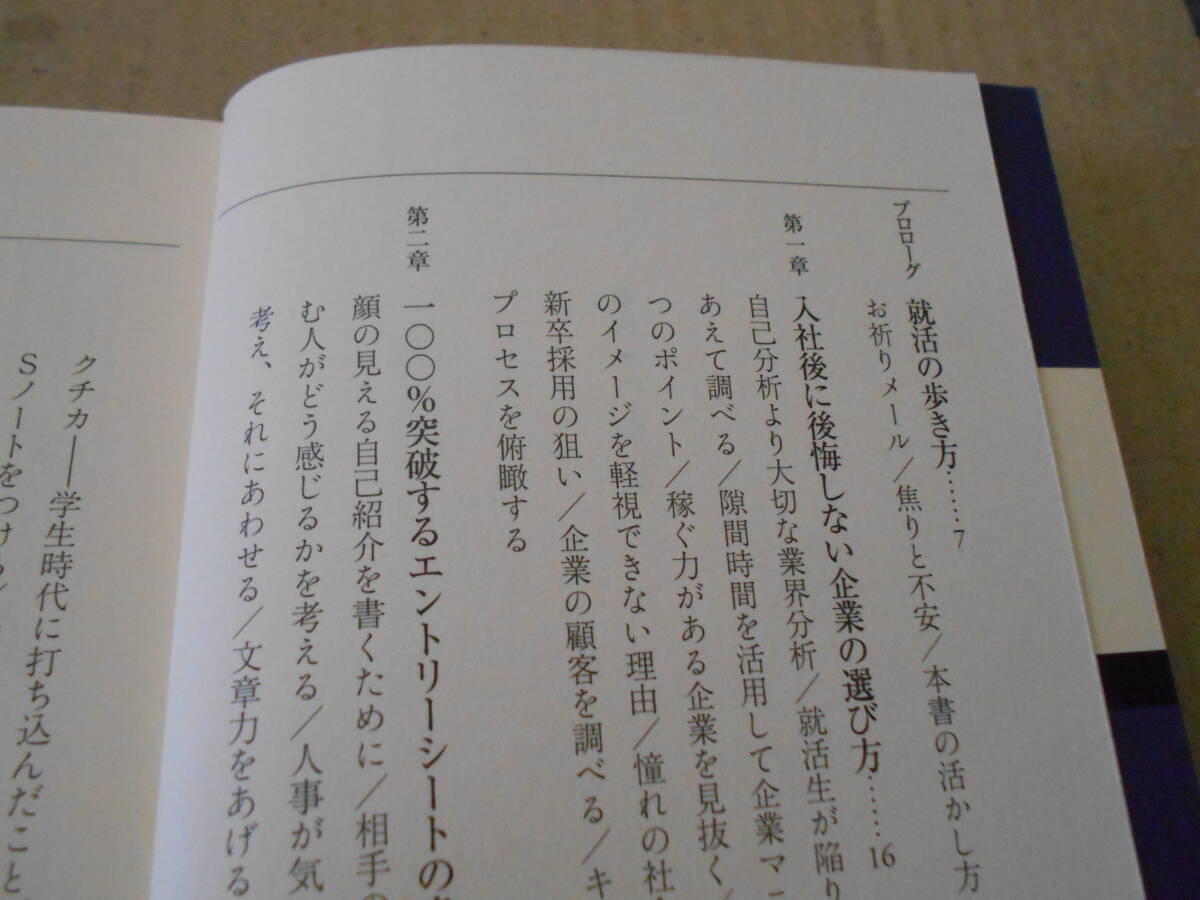 プロローグ 就活の歩き方……7
お祈りメール/焦りと不安/本書の活かし方
第一章 入社後に後悔しない企業の選び方……16
自己分析より大切な業界分析/就活生が陥り
あえて調べる/隙間時間を活用して企業マニ
つのポイント/稼ぐ力がある企業を見抜く/
のイメージを軽視できない理由/憧れの社
新卒採用の狙い/企業の顧客を調べる/キ
プロセスを俯瞰する
第二章 一〇〇%突破するエントリーシートの
顔の見える自己紹介を書くために/相手の
む人がどう感じるかを考える/人事が気
考え、それにあわせる/文章力をあげる
クチカ——学生時代に打ち込んだこと
Sノートをつける/